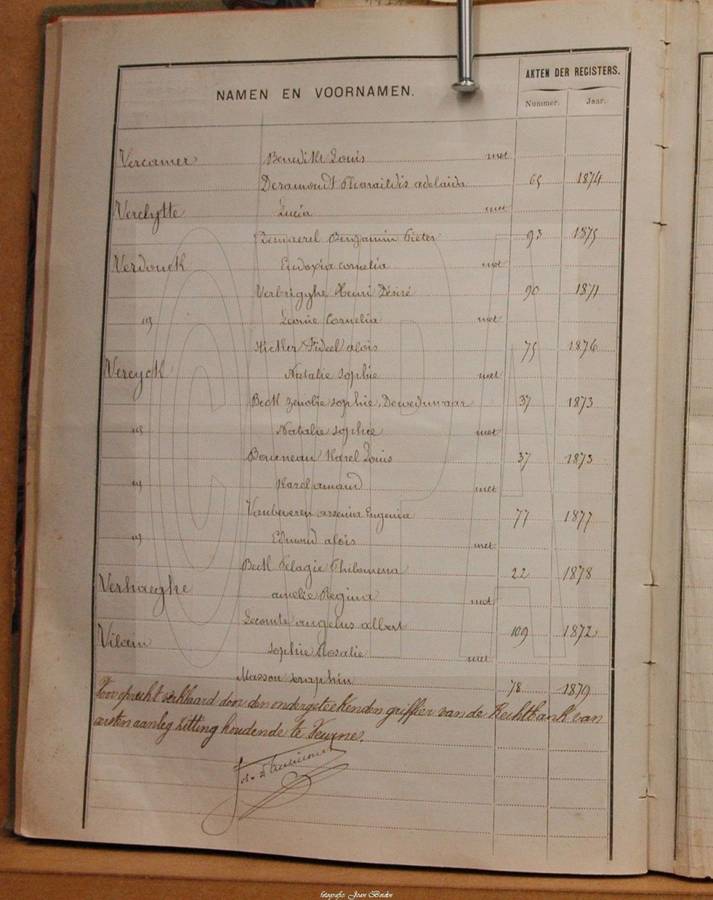 NAMEN EN VOORNAMEN. AKTEN DER REGISTERS.
Nummer. Jaar.
Vercamer Benedikt Louis met
Deramoudt Pharaildis adelaida 65 1874
Verclytte Lucia met
Benjamin Pieter 93 1875
Verdonck Eudoxia cornelia met
Verbrigghe Henri Désiré 90 1871
id Leonie Cornelia met
Fideel alois 75 1876
Vereyck Natalie sophie met
Beck sophie, 37 1873
id Natalie sophie met
Karel Louis 37 1873
id Karel amand met
Vanbeveren Eugenia 77 1877
id Edmond alois met
Beck Pelagie Philomena 22 1878
Verhaeghe amelie Regina met
Lecomte angelus albert 109 1872
Vilain sophie Rosalie met
Masson seraphin 78 1879
Voor oprecht verklaard door den ondergeteekenden griffier van de Rechtbank van
eersten aanleg zitting houdende te Veurne.